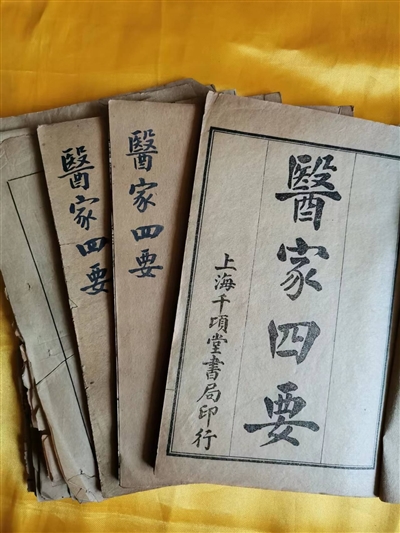 醫家四要
醫家四要
醫家四要
上海千頃堂書局印行